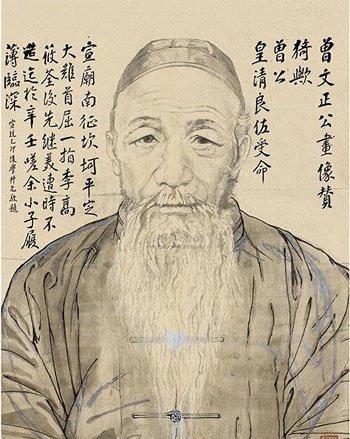 曾文正公畫像贊
猗歟
曾公
皇清良佐受命
宣廟南征坎坷平定
大難首屈一指李高
筱荃後先繼美遭時不
造迄於辛壬嗟余小子履
薄臨深
卯後學 題